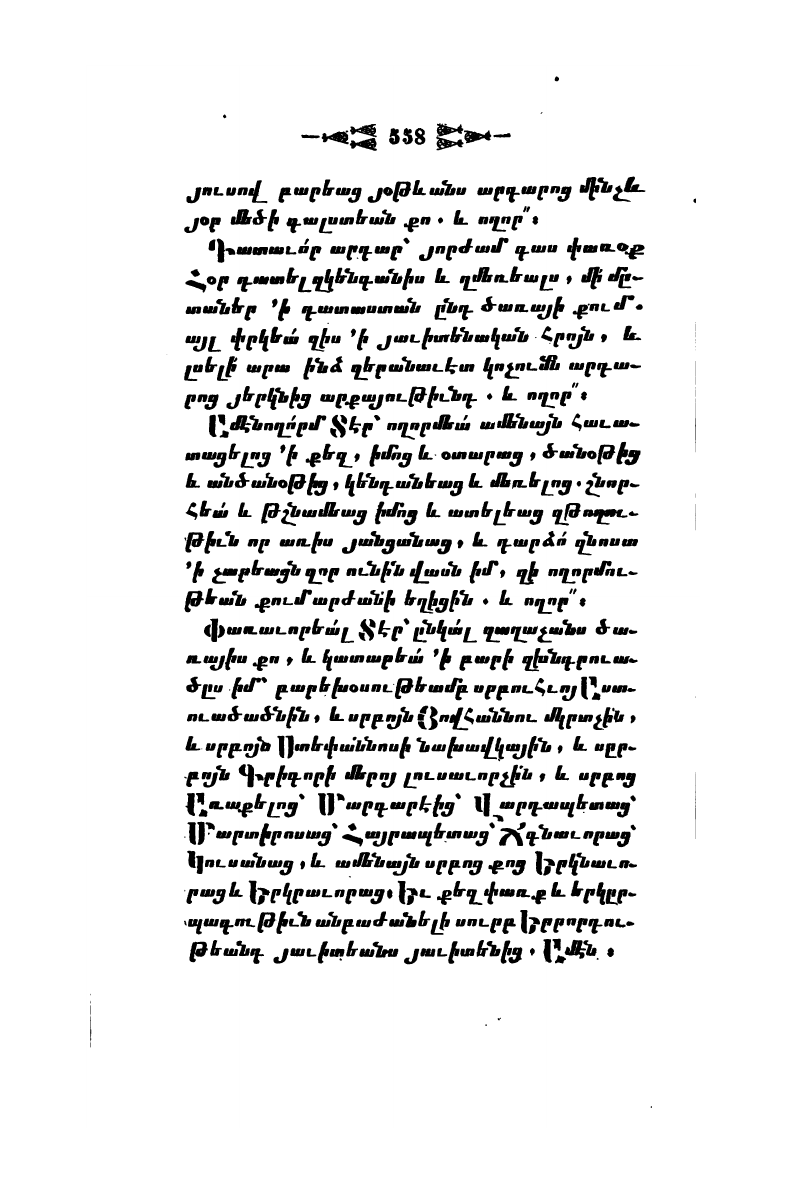 558
յուսով բարեաց յօթևանս արդարոց մինչև
յօր մեծի գալստեան քո . և ողոր՟։
Դատաւո՛ր արդար՝ յորժամ գաս փառօք
Հօր դատել զկենդանիս և զմեռեալս , մի մը-
տաներ ՚ի դատաստան ընդ ծառայի քում .
այլ փրկեա՛ զիս ՚ի յաւիտենական հրոյն , և
լսելի՛ արա ինձ զերանաւէտ կոչումն արդա-
րոց յերկնից արքայութիւնդ . և ողոր՟։
Ամենողո՛րմ Տէր՝ ողորմեա՛ ամենայն հաւա-
տացելոց ՚ի քեզ , իմոց և օտարաց , ծանօթից
և անծանօթից , կենդանեաց և մեռելոց . շնոր-
հեա՛ և թշնամեաց իմոց և ատելեաց զթողու-
թիւն որ առիս յանցանաց , և դարձո՛ զնոսա
՚ի չարեացն զոր ունին վասն իմ , զի ողորմու-
թեան քում արժանի եղիցին . և ողոր՟։
Փառաւորեա՛լ Տէր՝ ընկա՛լ զաղաչանս ծա-
ռայիս քո , և կատարեա՛ ՚ի բարի զխնդրուա-
ծըս իմ՝ բարեխօսութեամբ սրբուհւոյ Աստ-
ուածածնին , և սրբոյն Յովհաննու մկրտչին ,
և սրբոյն Ստեփաննոսի նախավկային , և սըր-
բոյն Գրիգորի մերոյ լուսաւորչին , և սրբոց
Առաքելոց՝ Մարգարէից՝ Վարդապետաց՝
Մարտիրոսաց՝ Հայրապետաց՝ Ճգնաւորաց՝
Կուսանաց , և ամենայն սրբոց քոց Երկնաւո-
րաց և Երկրաւորաց։ Եւ քեզ փառք և երկըր-
պագութիւն անբաժանելի սուրբ Երրորդու-
թեանդ յաւիտեանս յաւիտենից , Ամէն ։